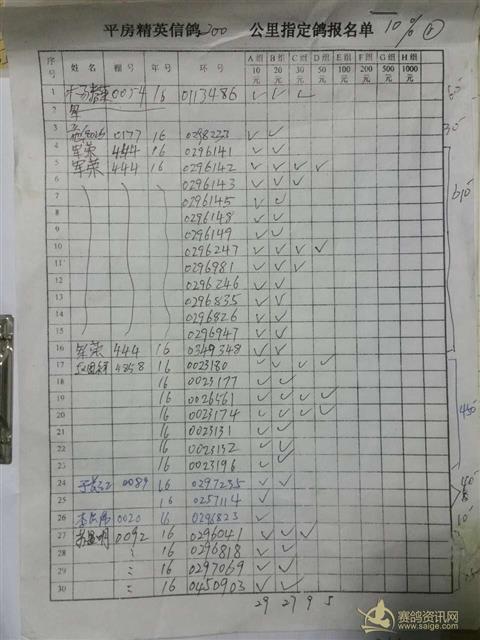 10%
平房精英信鸽200 公里指定鸽报名单
序号 姓名 棚号 年号 环号 A组10元 B组20元 C组30元 D组50元 E组100元 F组200元 G组500元 H组1000元
1 0054 16 0113486 ✓ ✓ ✓
2
3 0177 16 0298233 ✓ ✓
4 军荣 444 16 0296141 ✓ ✓
5 军荣 444 16 0296142 ✓ ✓ ✓ ✓
6 0296143 ✓ ✓ ✓
7 0296145 ✓ ✓
8 0296148 ✓ ✓
9 0296149 ✓ ✓
10 0296247 ✓ ✓ ✓ ✓
11 0296981 ✓ ✓ ✓
12 0296246 ✓ ✓
13 0296835 ✓ ✓
14 0296826 ✓ ✓
15 0296947 ✓ ✓
16 军荣 444 16 0349348 ✓ ✓
17 16 0023180 ✓ ✓ ✓ ✓
18 16 0023177 ✓ ✓
19 16 0026561 ✓ ✓ ✓ ✓
20 16 0023174 ✓ ✓ ✓ ✓
21 16 0023131 ✓ ✓
22 16 0023132 ✓ ✓
23 16 0023196 ✓ ✓
24 0089 16 0297235 ✓ ✓
25 16 0257114 ✓
26 0020 16 0296823 ✓
27 0092 16 0296041 ✓ ✓ ✓
28 16 0296818 ✓ ✓
29 16 0297069 ✓ ✓
30 16 0450903 ✓ ✓
29 27 9 5
赛鸽资讯网
www.saige.com